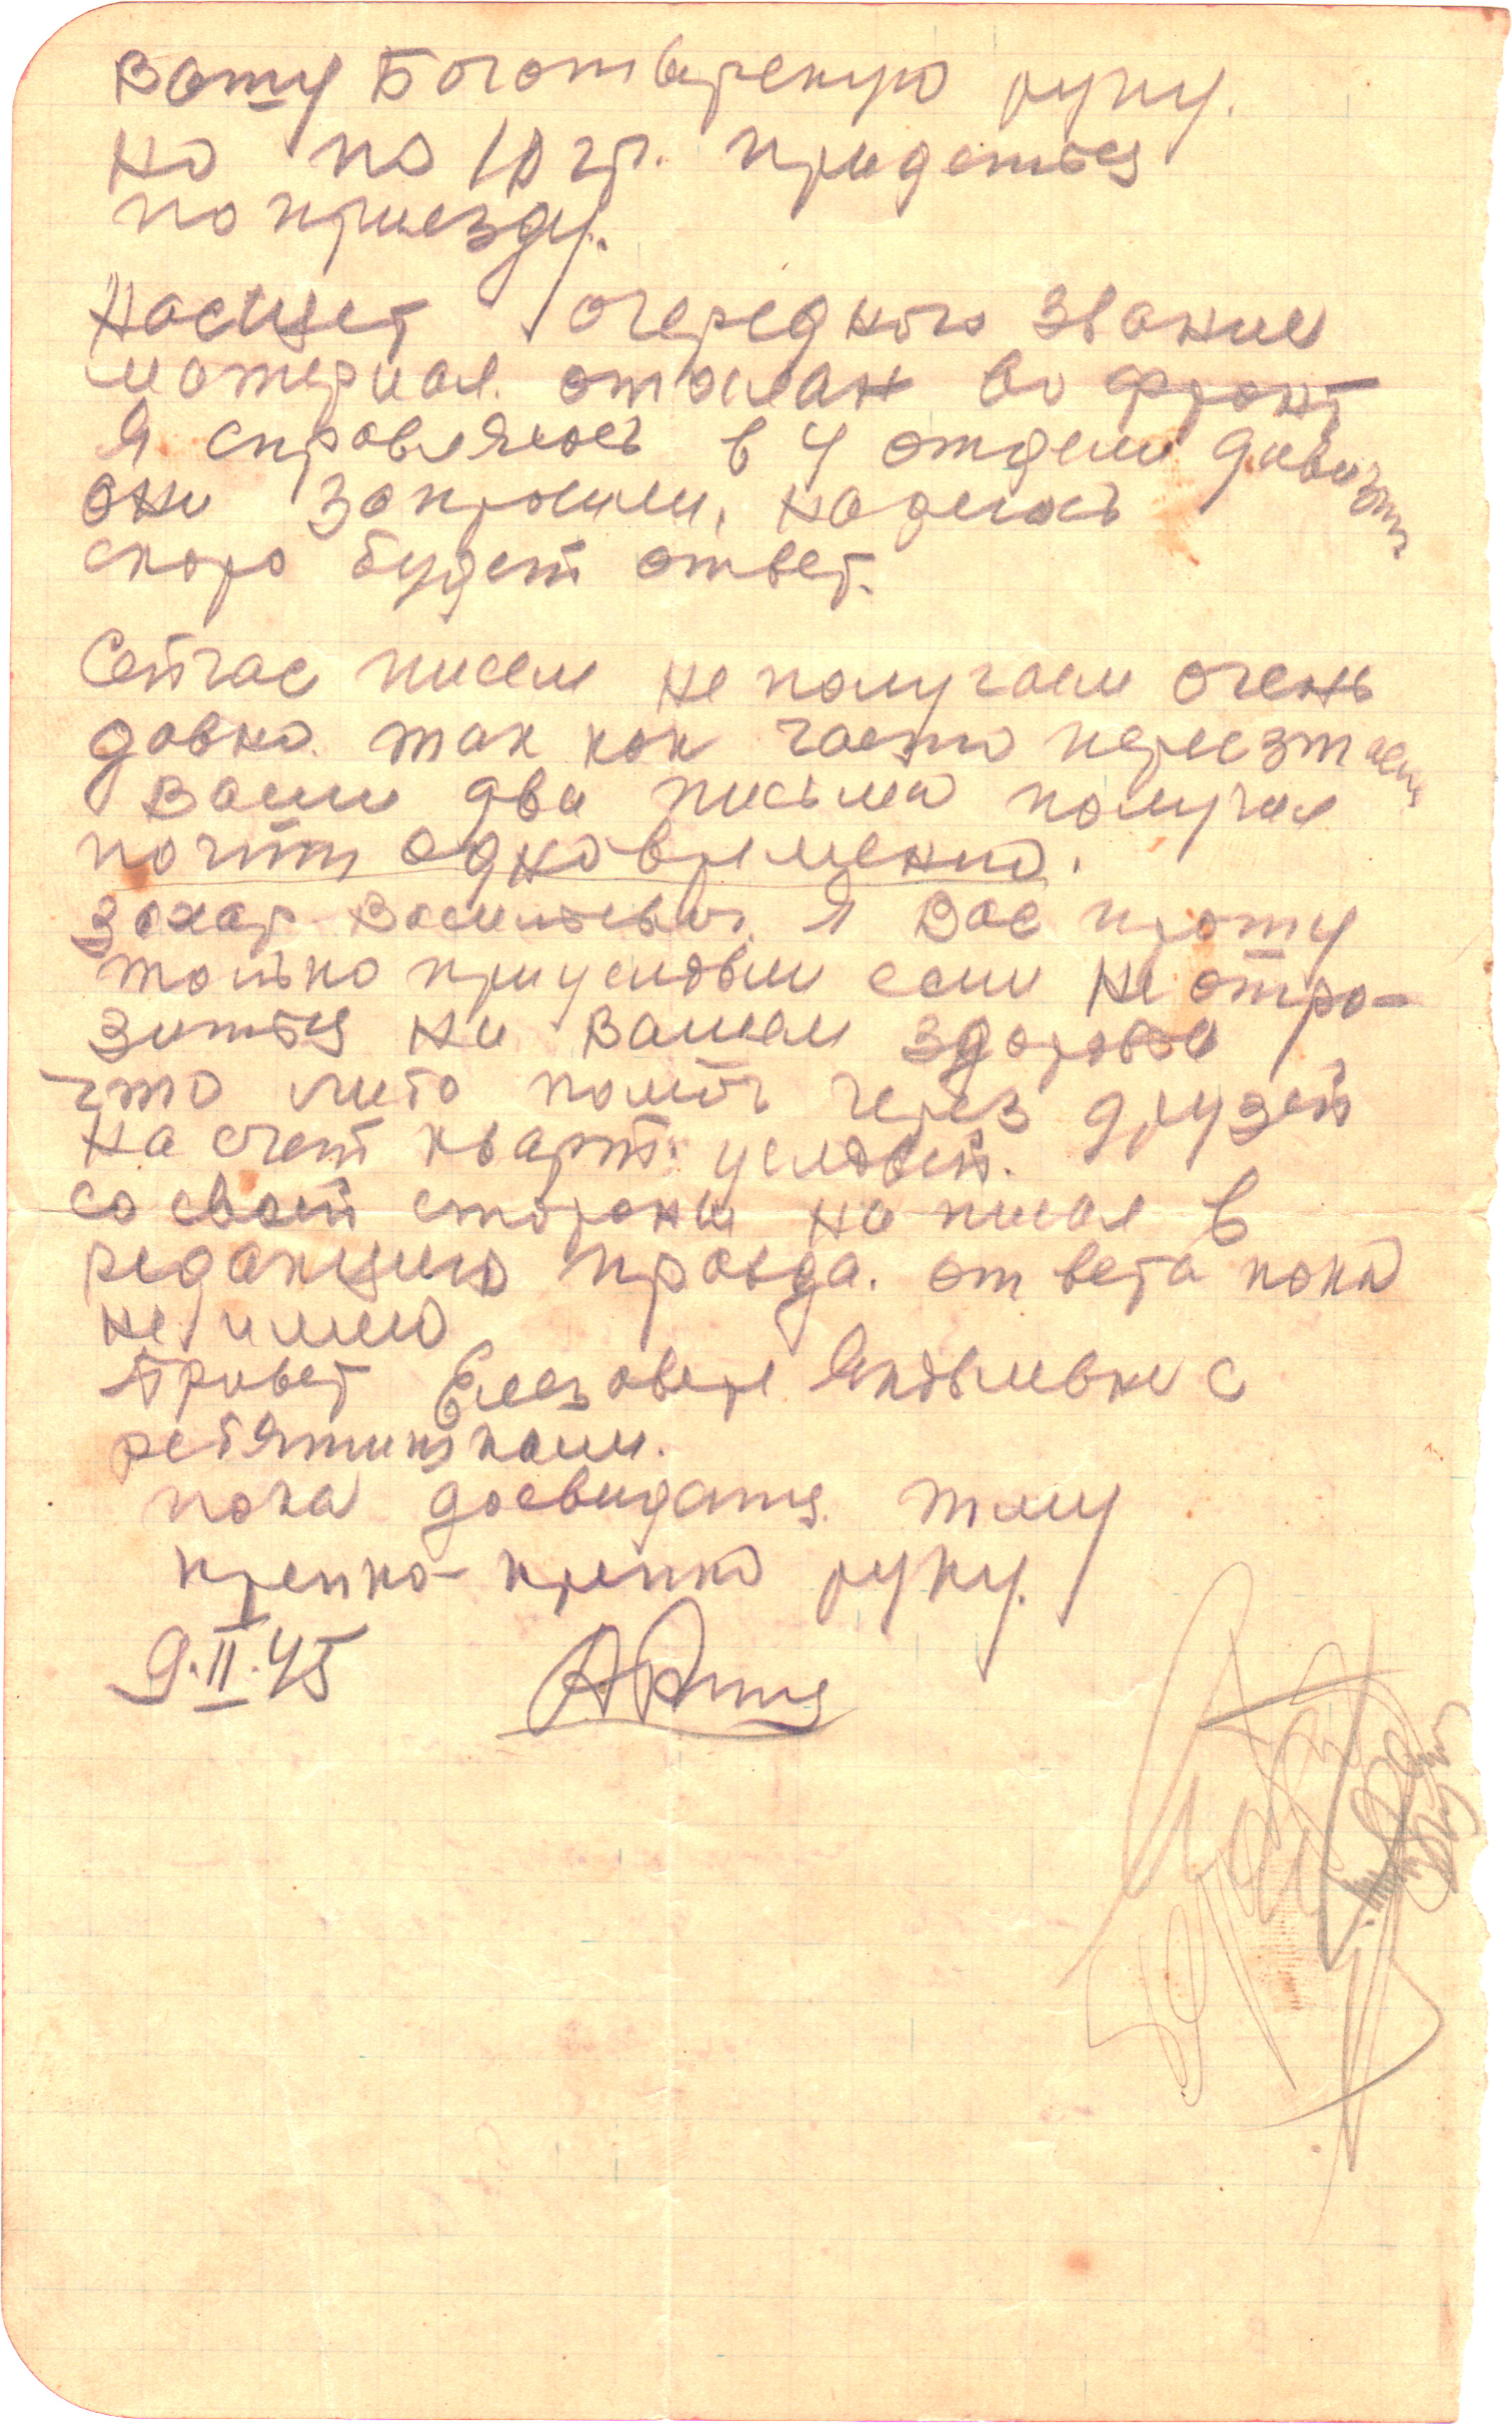 Вашу Боготырскую руку.
но по 10 гр. придеться
по приезду.
Насщет очередного звание
материал отослан во фронт
Я справлялось в 4 отделе дивизии
они запросили, надеюсь
скоро будет ответ.
Сейчас писем не получаем очень
давно. так как часто переезжаем
Ваши два письма получил
почти одновременно.
Захар Васильевич. я Вас прошу
только приусловии если не отро-
зиться на Вашем здоровье
что либо помоч через друзей
на счет кварт. условий.
со своей стороны написал в
редакцию правда. ответа пока
не имею
Привет Елезавете Яковлевне с
ребятишками.
пока досвидания. жму
крепко-крепко руку.
9.II.45